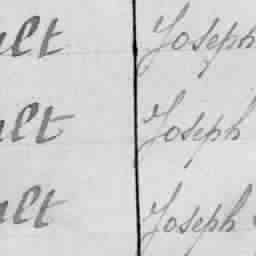 ult Joseph
ult Joseph
ult Joseph